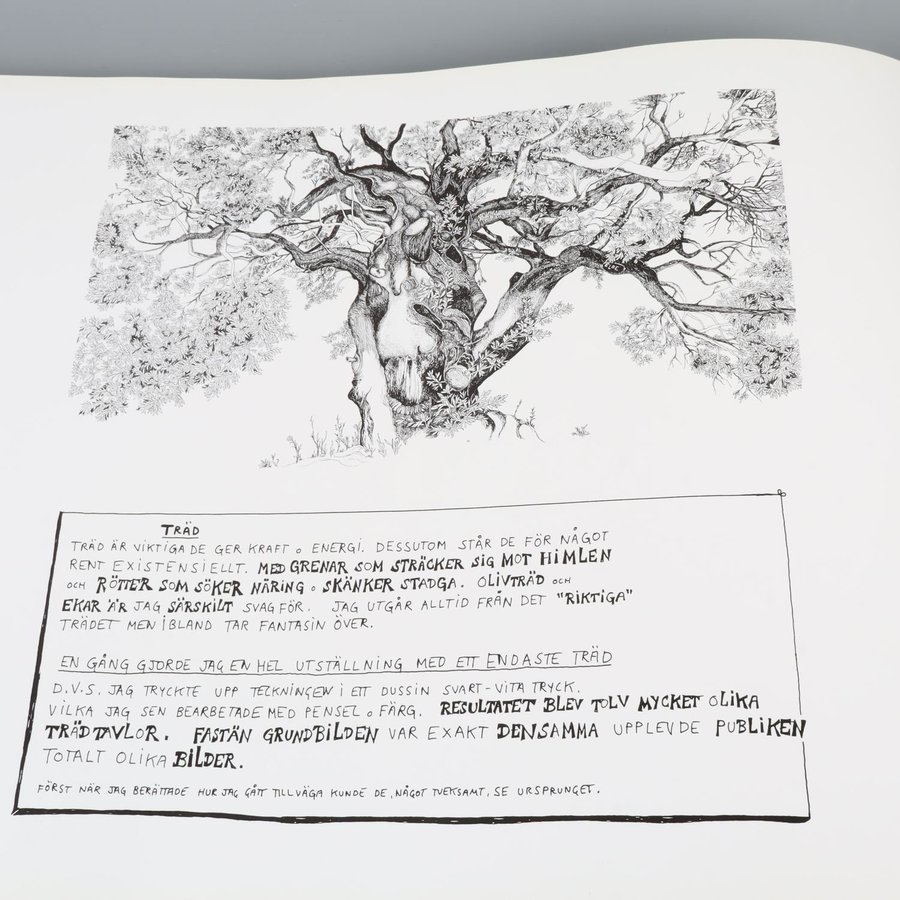 TRÄD
TRÄD ÄR VIKTIGA DE GER KRAFT o ENERGI. DESSUTOM STÅR DE FÖR NÅGOT
RENT EXISTENSIELLT. MED GRENAR SOM STRÄCKER SIG MOT HIMLEN
OCH RÖTTER SOM SÖKER NÄRING o SKÄNKER STADGA. OLIVTRÄD OCH
EKAR ÄR JAG SÄRSKILT SVAG FÖR. JAG UTGÅR ALLTID FRÅN DET "RIKTIGA"
TRÄDET MEN IBLAND TAR FANTASIN ÖVER.
EN GÅNG GJORDE JAG EN HEL UTSTÄLLNING MED ETT ENDASTE TRÄD
D.V.S. JAG TRYCKTE UPP TECKNINGEN I ETT DUSSIN SVART-VITA TRYCK.
VILKA JAG SEN BEARBETADE MED PENSEL o FÄRG. RESULTATET BLEV TOLV MYCKET OLIKA
TRÄDTAVLOR. FASTÄN GRUNDBILDEN VAR EXAKT DENSAMMA UPPLEVDE PUBLIKEN
TOTALT OLIKA BILDER.
FÖRST NÄR JAG BERÄTTADE HUR JAG GÅTT TILLVÄGA KUNDE DE, NÅGOT TVEKSAMT, SE URSPRUNGET.